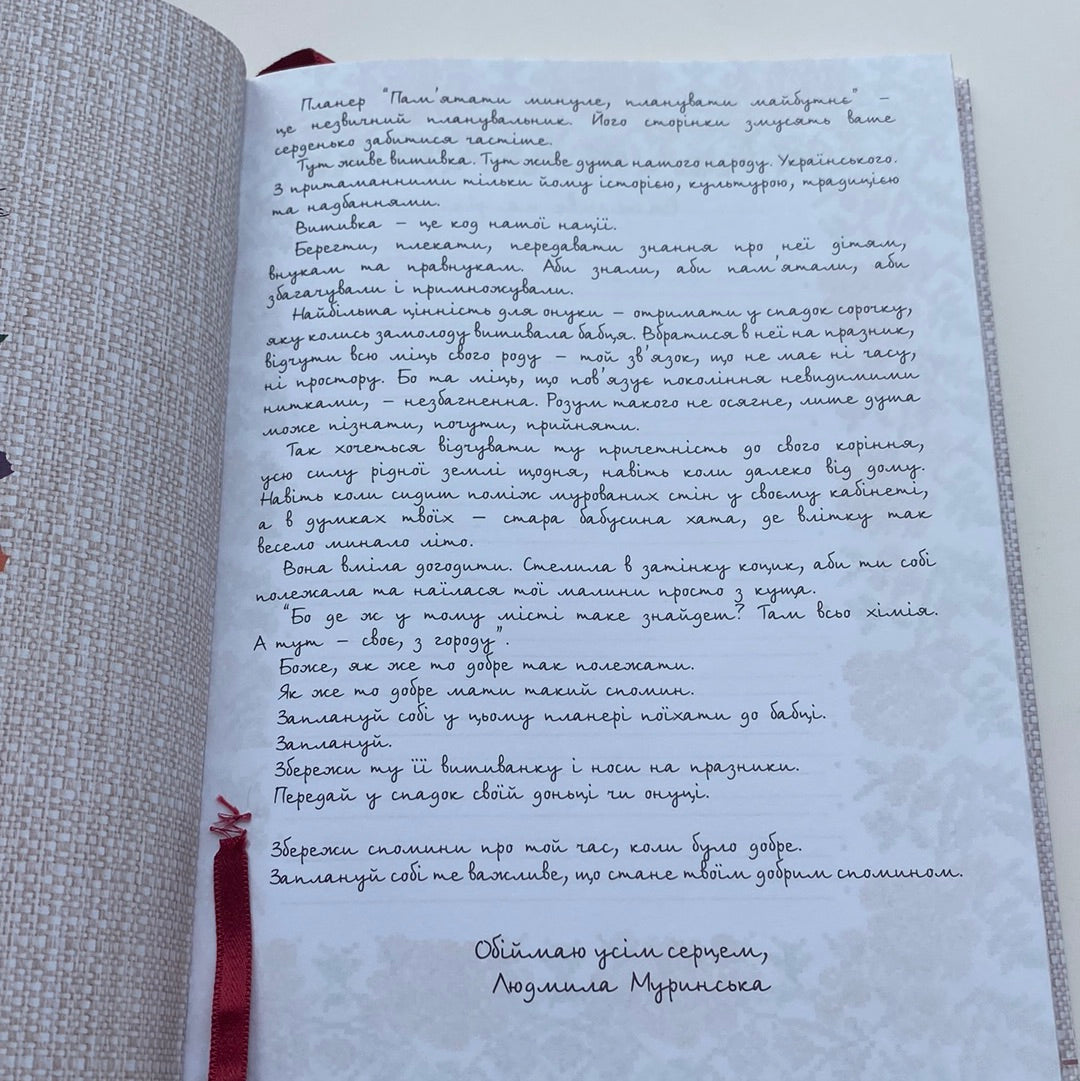 Планер "Пам'ятати минуле, планувати майбутнє" –
це незвичний планувальник. Його сторінки змусять ваше
серденько забитися частіше.
Тут живе вишивка. Тут живе душа нашого народу. Українського.
З притаманними тільки йому історією, культурою, традицією
та надбаннями.
Вишивка – це код нашої нації.
Берегти, плекати, передавати знання про неї дітям,
внукам та правнукам. Аби знали, аби пам'ятали, аби
збагачували і примножували.
Найбільша цінність для онуки – отримати у спадок сорочку,
яку колись замолоду вишивала бабця. Вбратися в неї на празник,
відчути всю міць свого роду – той зв'язок, що не має ні часу,
ні простору. Бо та міць, що пов'язує покоління невидимими
нитками, – незбагненна. Розум такого не осягне, лише душа
може пізнати, почути, прийняти.
Так хочеться відчувати ту причетність до свого коріння,
усю силу рідної землі щодня, навіть коли далеко від дому.
Навіть коли сидиш поміж мурованих стін у своєму кабінеті,
а в думках твоїх – стара бабусина хата, де влітку так
весело минало літо.
Вона вміла догодити. Стелила в затінку коцик, аби ти собі
полежала та наїлася тої малини просто з куща.
"Бо де ж у тому місті таке знайдеш? Там всьо хімія.
А тут – своє, з городу".
Боже, як же то добре так полежати.
Як же то добре мати такий спомин.
Заплануй собі у цьому планері поїхати до бабці.
Заплануй.
Збережи ту її вишиванку і носи на празники.
Передай у спадок своїй доньці чи онуці.
Збережи спомини про той час, коли було добре.
Заплануй собі те важливе, що стане твоїм добрим спомином.
Обіймаю усім серцем,
Людмила Муринська